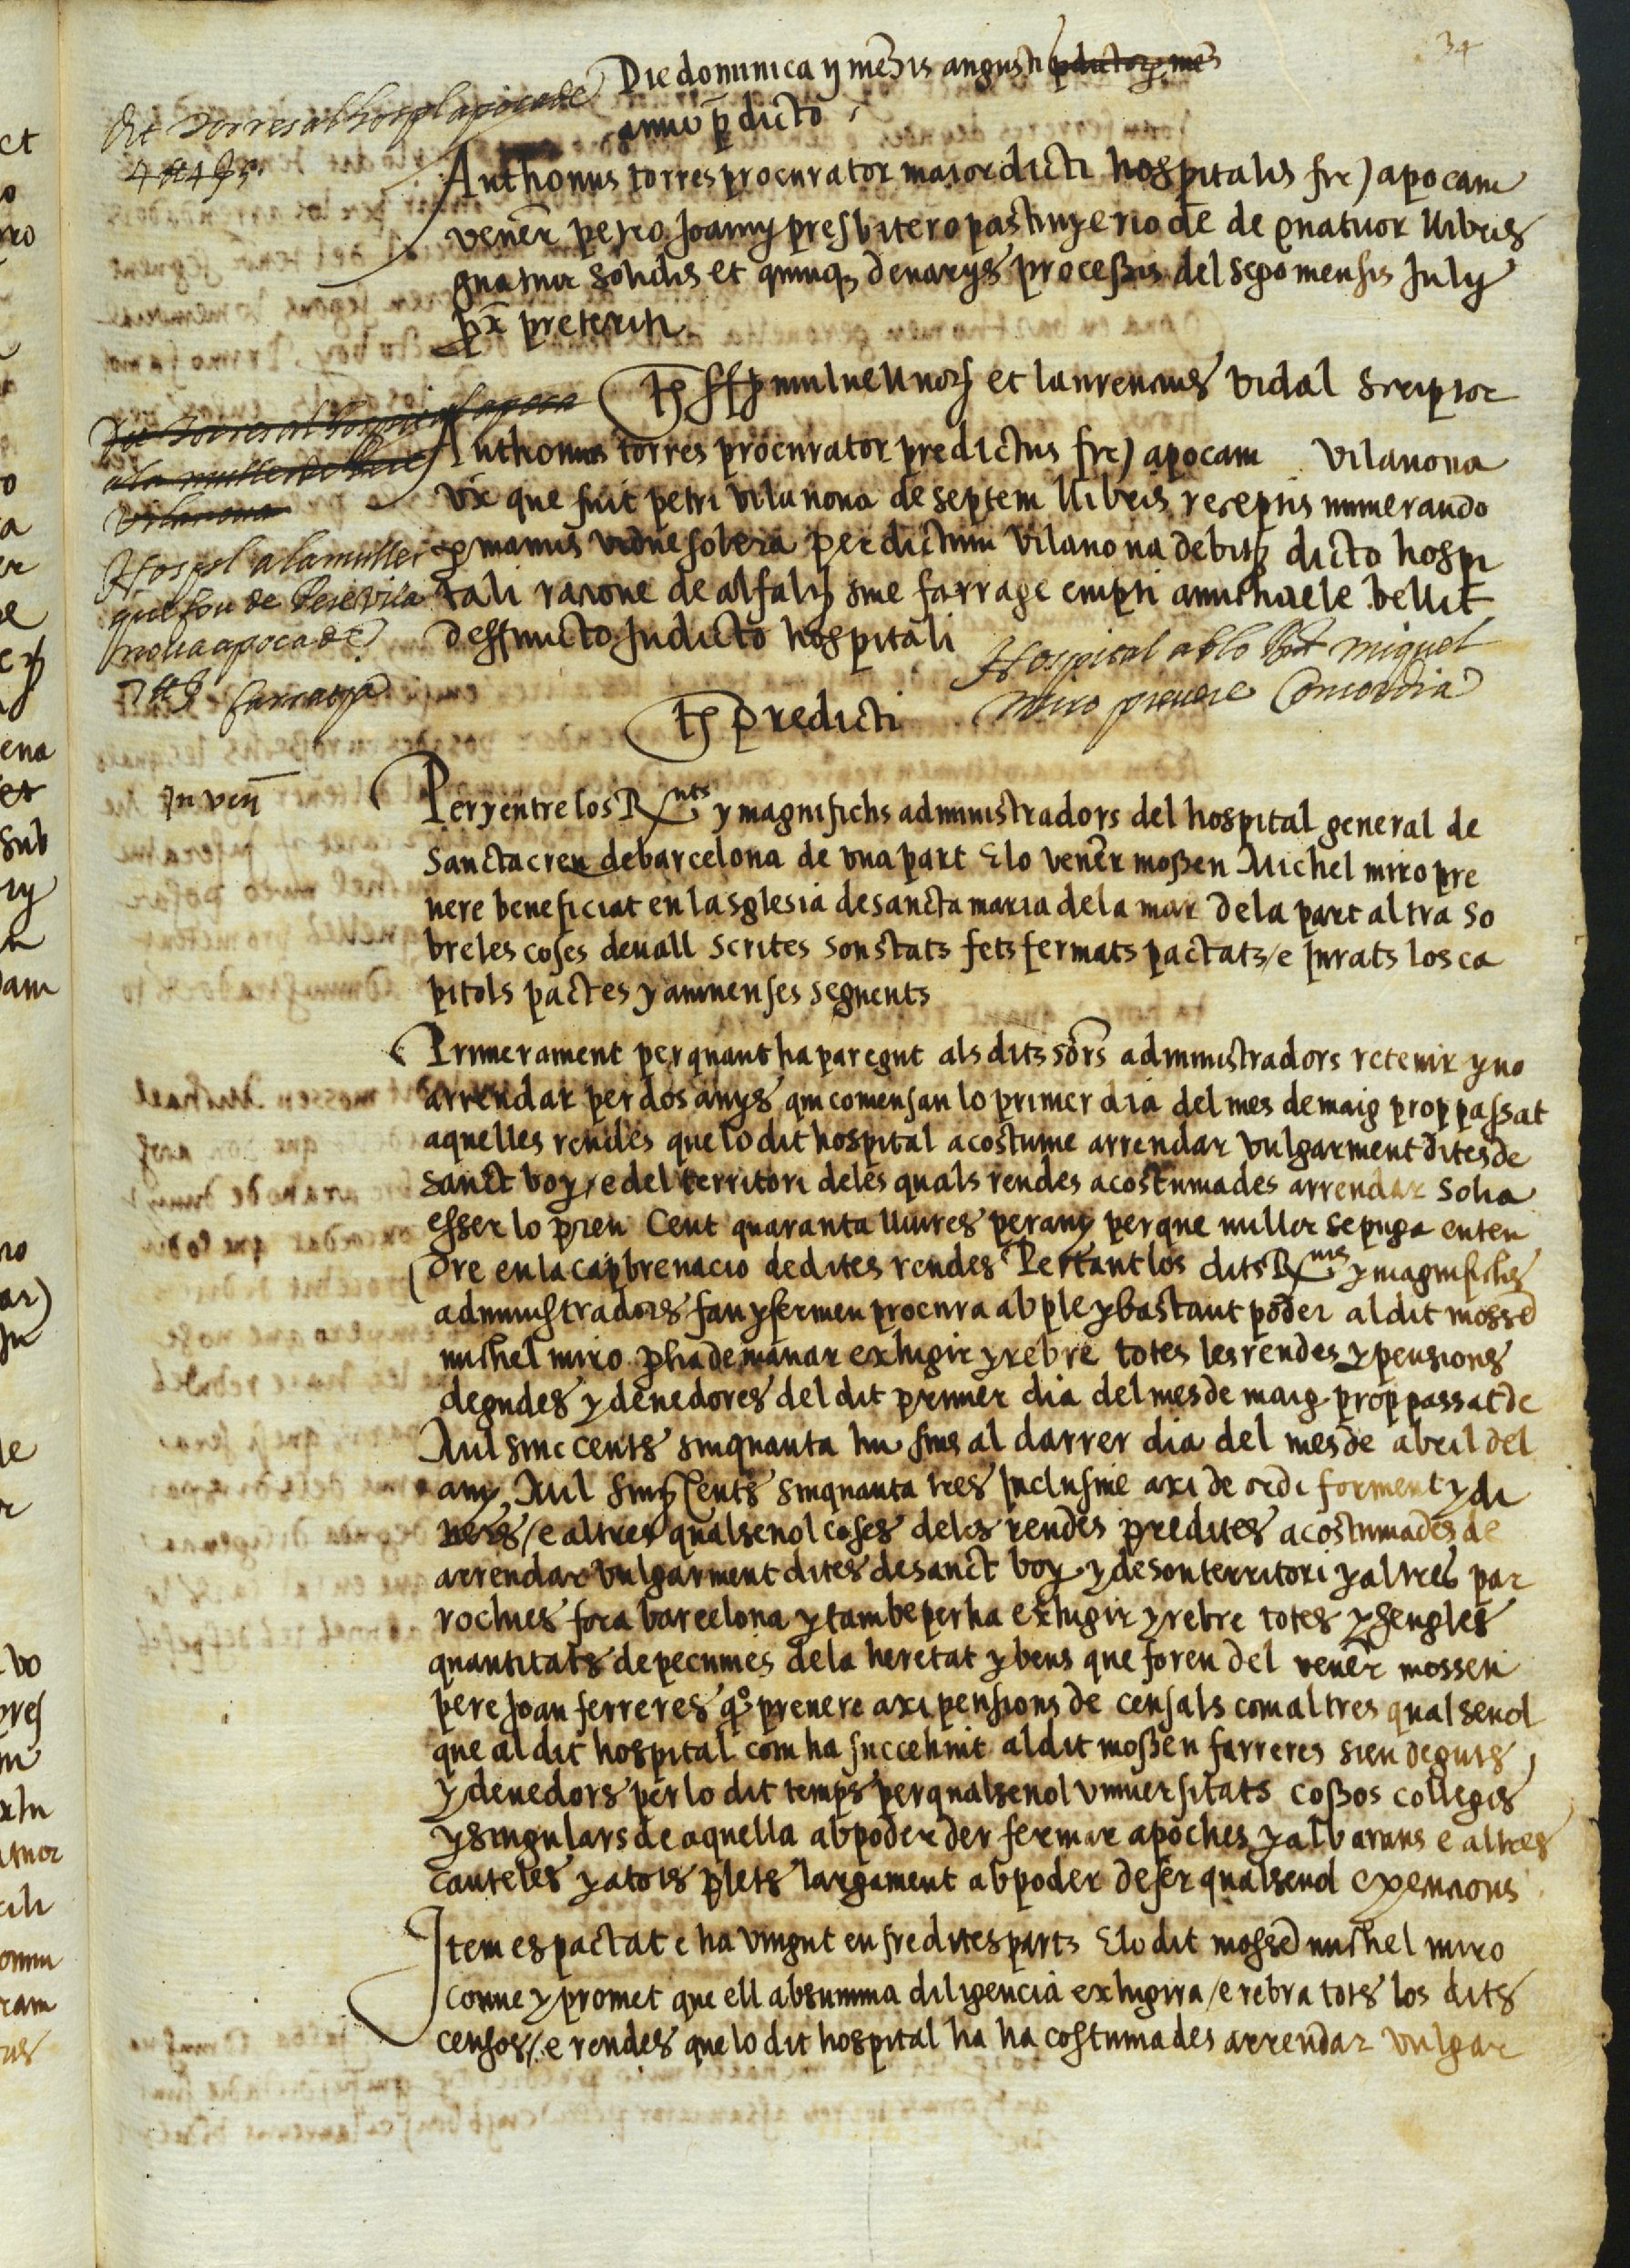 34
Die dominica ij mēsis augusti p̄dictorȝ mēs
anno p̄dicto
Dit Torres al hospl apoca de
4 ℔ 4 ß 5
Anthonus torres procurator maior dicti hospitalis fr) apocam
venēr petro Joanny presbitero pastinyerio de de quatuor llibris
quatuor solidis et quinqȝ denarys processis del sepo mensis July
px̄ preteriti
Ts et laurencius vidal scriptor
Dit Torres al hospital apoca
a la muller
Vilanova
Anthonus torres procurator predictus fr) apocam vilanova
vx̄ que fuit petri vilanova de septem llibris receptis numerando
p manus vidue sobera per dictum vilanova debitȝ dicto hospi
tali racione de alfalȝ sive farrage empti a michaele bellit
deffuncto in dicto hospitali
Hospl a la muller
que fou de Pere Vila
nova apoca de
7 ℔ farratja
Hospital ab lo Rnt miquel
miro prevere Concordia
Ts predicti
In ven̄
Per y entre los Rnts y magnifichs administradors del hospital general de
Sancta creu de barcelona de una part E lo venēr mossen Michel miro pre
vere beneficiat en la sglesia de sancta maria de la mar de la part altra so
bre les coses devall scrites son stats fets fermats pactats / e jurats los ca
pitols pactes y avinenses seguents
Primerament per quant ha paregut als dits sōrs administradors retenir y no
arrendar per dos anys qui comensan lo primer dia del mes de maig prop passat
aquelles rendes que lo dit hospital acostume arrendar vulgarment dites de
sanct boy / e del territori de les quals rendes acostumades arrendar solia
esser lo preu Cent quaranta lliures per any perque millor se puga enten
dre en la capbrevacio de dites rendes Per tant los dits Rnts y magnifichs
administradors fan y fermen procura ab ple y bastant poder al dit mossē
michel miro p ha demanar exhigir y rebre totes les rendes y pensions
degudes y devedores del dit primer dia del mes de maig prop passat de
Mil sinc cents sinquanta hu fins al darrer dia del mes de abril del
any Mil sinq Cents sinquanta tres inclusive axi de ordi forment y di
ners / e altres qualsevol coses de les rendes predites acostumades de
arrendar vulgarment dites de sanct boy y de son territori y altres par
rochies fora barcelona y tambe per ha exhigir y rebre totes y sengles
quantitats de pecunies de la heretat y bens que foren del venēr mossen
pere Joan ferreres qº prevere axi pensions de censals com altres qualsevol
que al dit hospital com ha succehint al dit mossen farreres sien deguts
y devedors per lo dit temps per qualsevol universitats cossos collegis
y singulars de aquella ab poder de fermar apoches y albarans e altres
cauteles y a tots plets largament ab poder de fer qualsevol expencions
Item es pactat e ha vingut enfre dites parts E lo dit mossē michel miro
conve y promet que ell ab summa diligencia exhigira / e rebra tots los dits
censos / e rendes que lo dit hospital ha ha costumades arrendar vulgar